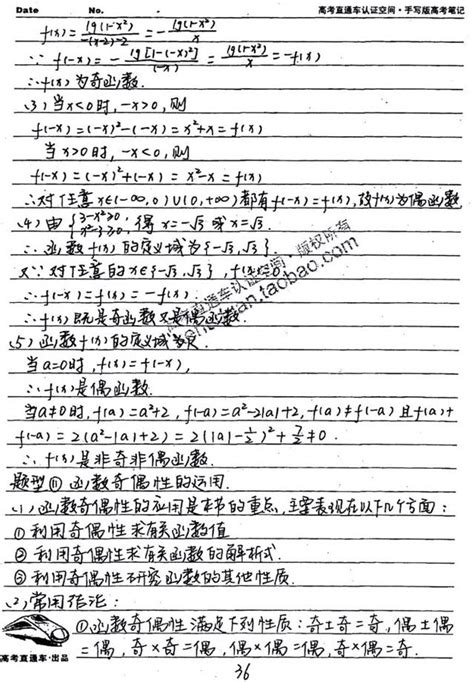 Date No. 高考直通车认证空间·手写版高考笔记
f(x)=lg(1-x²)/-(x-2)-2=-lg(1-x²)/x
∵ f(-x)=-lg[1-(-x)²]/(-x)=lg(1-x²)/x=-f(x)
∴f(x)为奇函数.
(3)当x<0时,-x>0,则
f(-x)=(-x)²-(-x)=x²+x=f(x)
当x>0时,-x<0,则
f(-x)=(-x)²+(-x)=x²-x=f(x)
∴对任意x∈(-∞,0)∪(0,+∞)都有f(-x)=f(x),故f(x)为偶函数
(4)由{3-x²≥0, x²-3≥0, 得x=-√3或x=√3.
∴函数f(x)的定义域为{-√3,√3}.
又∵对任意的x∈{-√3,√3},f(x)=0.
∴f(-x)=f(x)=-f(x).
∴f(x)既是奇函数又是偶函数.
(5)函数f(x)的定义域为R.
当a=0时,f(x)=f(-x),
∴f(x)是偶函数.
当a≠0时,f(a)=a²+2,f(-a)=a²-2|a|+2,f(a)≠f(-a)且f(a)+
f(-a)=2(a²-|a|+2)=2(|a|-1/2)²+7/2≠0.
∴f(x)是非奇非偶函数.
题型⑪函数奇偶性的运用.
(1)函数奇偶性的应用是本节的重点,主要表现在以下几个方面:
①利用奇偶性求有关函数值
②利用奇偶性求有关函数的解析式.
③利用奇偶性研究函数的其他性质.
(2)常用结论:
①函数奇偶性满足下列性质:奇±奇=奇,偶±偶
=偶,奇×奇=偶,偶×偶=偶,奇×偶=奇.
高考直通车·出品
36
直通车认证空间 版权所有
taobao.com